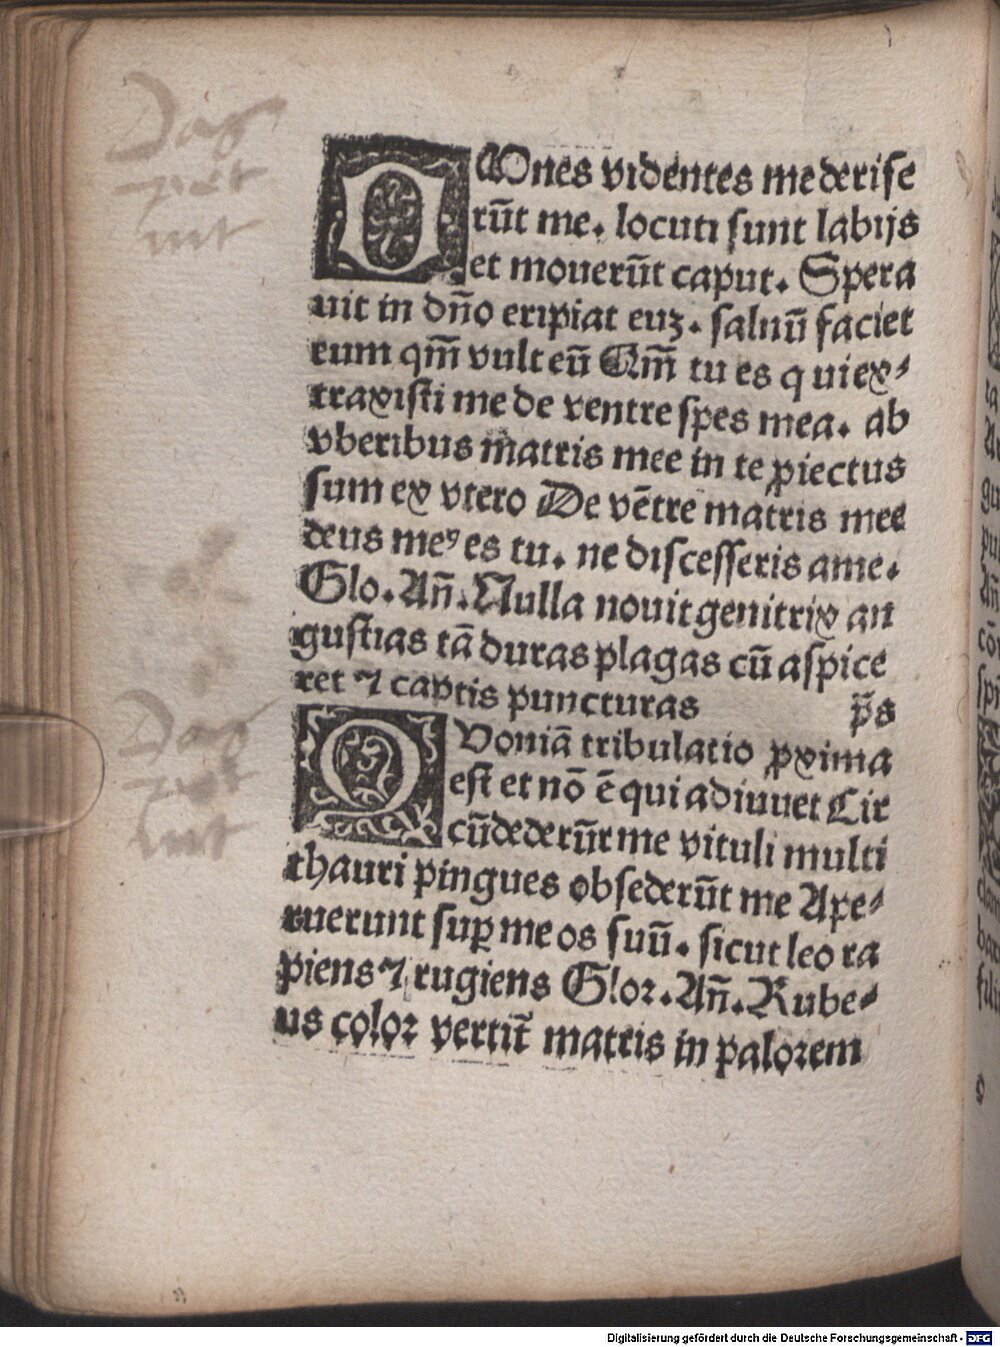 OMnes videntes me derise
rūt me. locuti sunt labijs
et mouerūt caput. Spera
uit in dño eripiat euȝ. saluū faciet
eum qm̄ vult eū Qm̄ tu es q ui ex⸗
traxisti me de ventre spes mea. ab
vberibus matris mee in te ꝓiectus
sum ex vtero De vētre matris mee
deus meꝰ es tu. ne discesseris a me.
Glo. Añ. Nulla nouit genitrix an
gustias tā duras plagas cū aspice
ret ⁊ captis puncturas p̄s
QVoniā tribulatio ꝓxima
est et nō ē qui adiuuet Cir
cūdederūt me vituli multi
thauri pingues obsederūt me Ape⸗
ruerunt suꝑ me os suū. sicut leo ra
piens ⁊ rugiens Glor. Añ. Rube⸗
us color vertit̄ matris in palorem
Digitalisierung gefördert durch die Deutsche Forschungsgemeinschaft - DFG